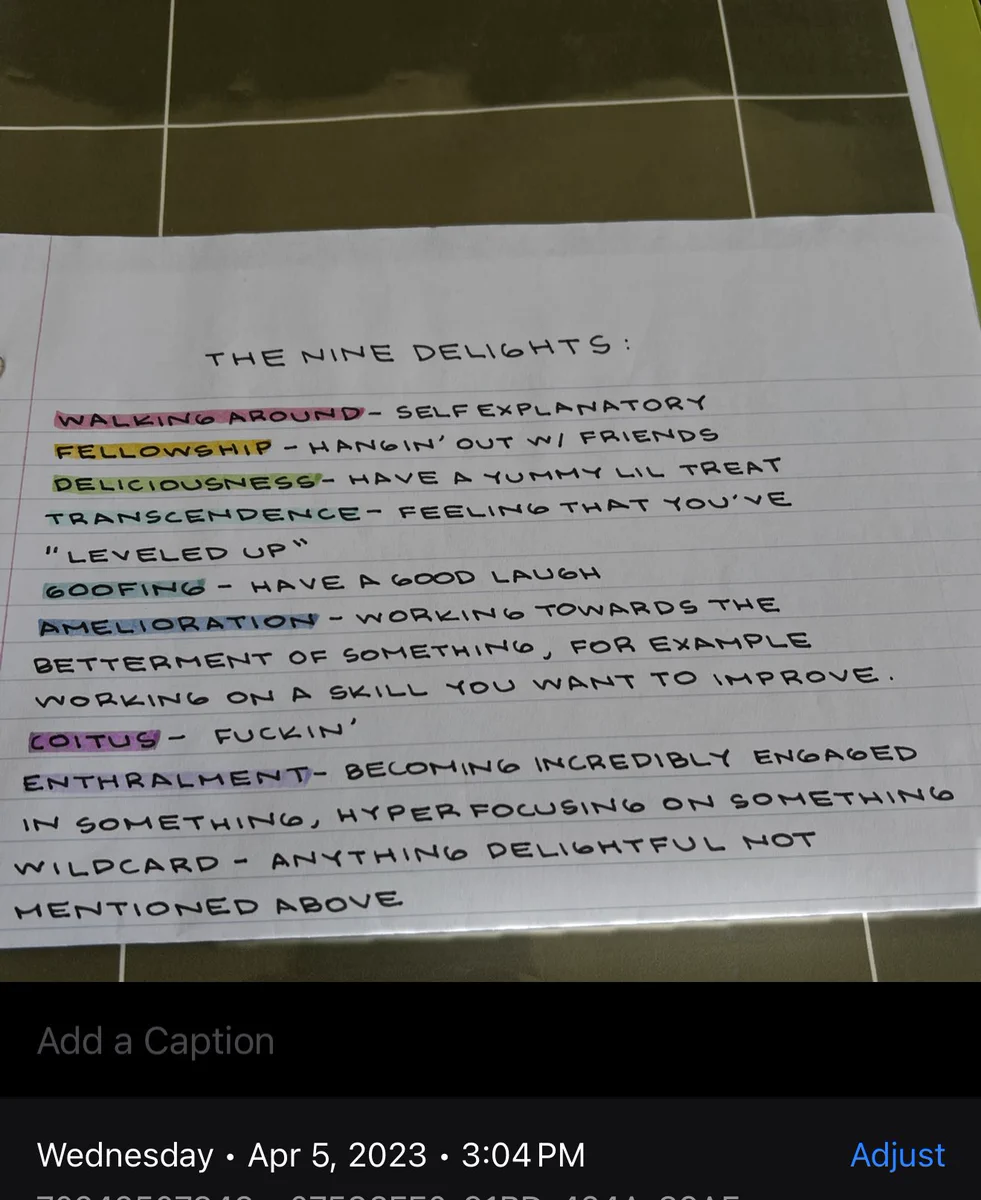 THE NINE DELIGHTS:
WALKING AROUND - SELF EXPLANATORY
FELLOWSHIP - HANGIN' OUT W/ FRIENDS
DELICIOUSNESS - HAVE A YUMMY LIL TREAT
TRANSCENDENCE - FEELING THAT YOU'VE
"LEVELED UP"
GOOFING - HAVE A GOOD LAUGH
AMELIORATION - WORKING TOWARDS THE
BETTERMENT OF SOMETHING, FOR EXAMPLE
WORKING ON A SKILL YOU WANT TO IMPROVE.
COITUS - FUCKIN'
ENTHRALMENT - BECOMING INCREDIBLY ENGAGED
IN SOMETHING, HYPER FOCUSING ON SOMETHING
WILDCARD - ANYTHING DELIGHTFUL NOT
MENTIONED ABOVE
Add a Caption
Wednesday • Apr 5, 2023 • 3:04 PM
Adjust